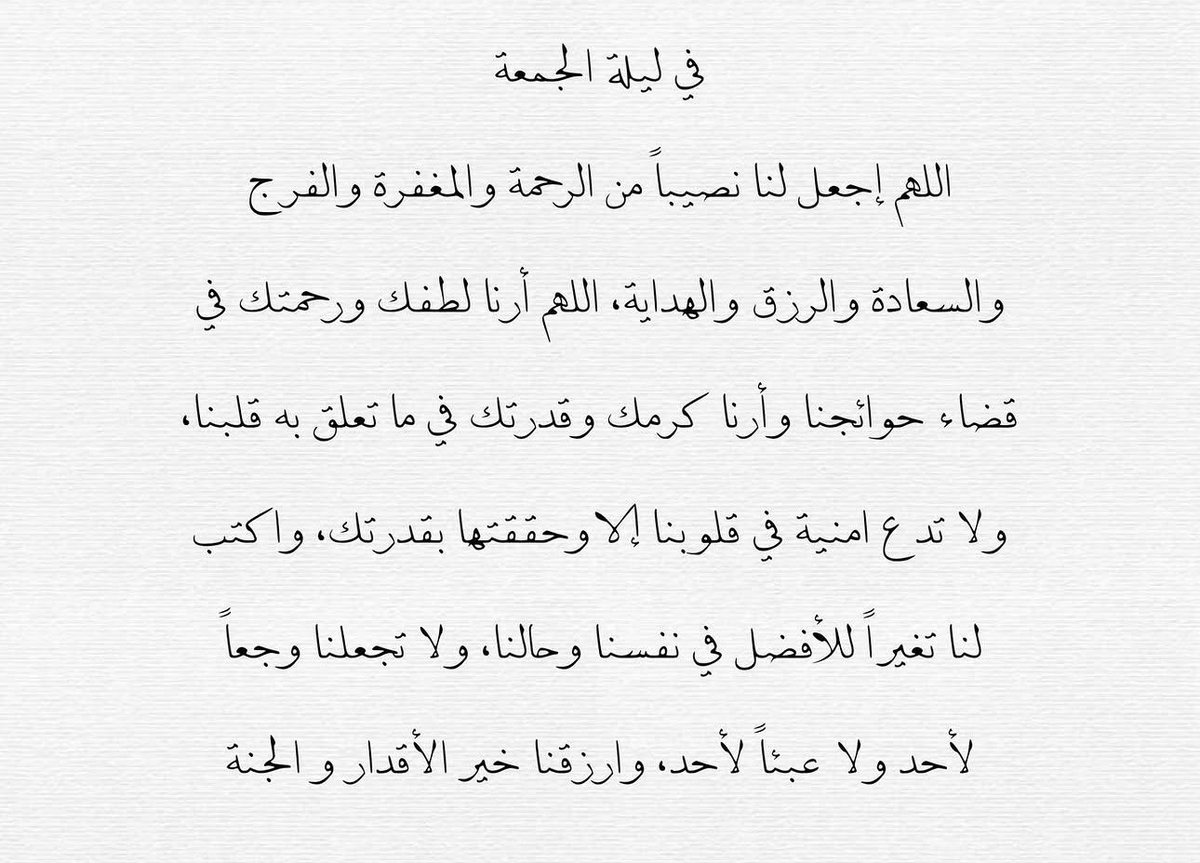 في ليلة الجمعة
اللهم إجعل لنا نصيباً من الرحمة والمغفرة والفرج
والسعادة والرزق والهداية، اللهم أرنا لطفك ورحمتك في
قضاء حوائجنا وأرنا كرمك وقدرتك في ما تعلق به قلبنا،
ولا تدع امنية في قلوبنا إلا وحققتها بقدرتك، واكتب
لنا تغيراً للأفضل في نفسنا وحالنا، ولا تجعلنا وجعاً
لأحد ولا عبئاً لأحد، وارزقنا خير الأقدار و الجنة